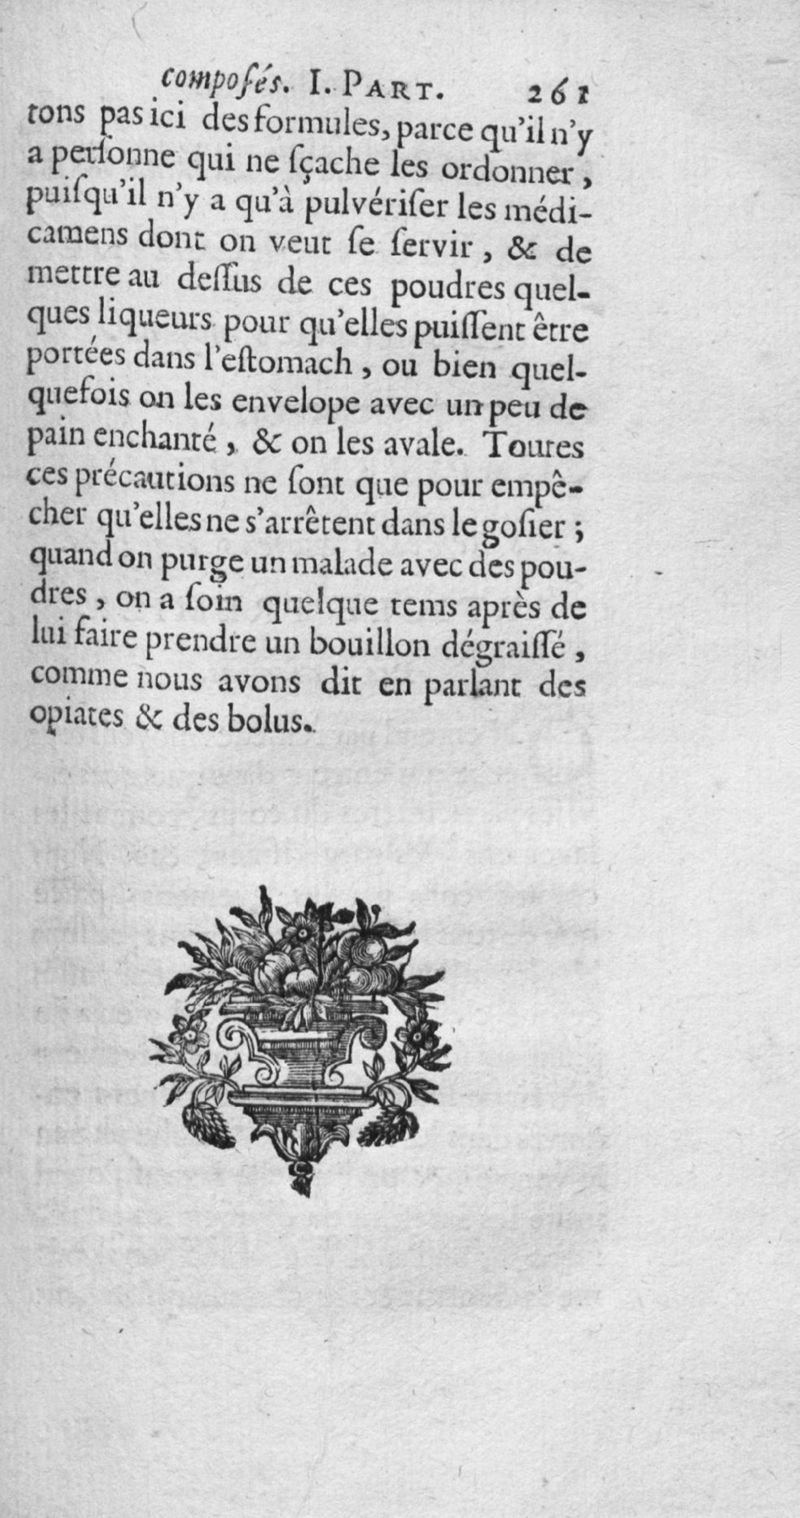 compoſés. I. PART. 261
tons pas ici des formules, parce qu'il n'y
a perſonne qui ne ſçache les ordonner,
puiſqu'il n'y a qu'à pulvériſer les médi-
camens dont on veut ſe ſervir, & de
mettre au deſſus de ces poudres quel-
ques liqueurs pour qu'elles puiſſent être
portées dans l'eſtomach, ou bien quel-
quefois on les envelope avec un peu de
pain enchanté, & on les avale. Toutes
ces précautions ne ſont que pour empê-
cher qu'elles ne s'arrêtent dans le goſier;
quand on purge un malade avec des pou-
dres, on a ſoin quelque tems après de
lui faire prendre un bouillon dégraiſſé,
comme nous avons dit en parlant des
opiates & des bolus.